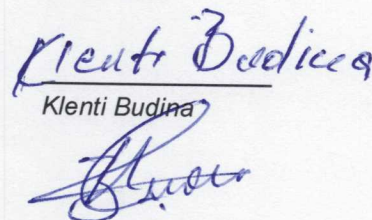 Klenti Budina
Klenti Budina